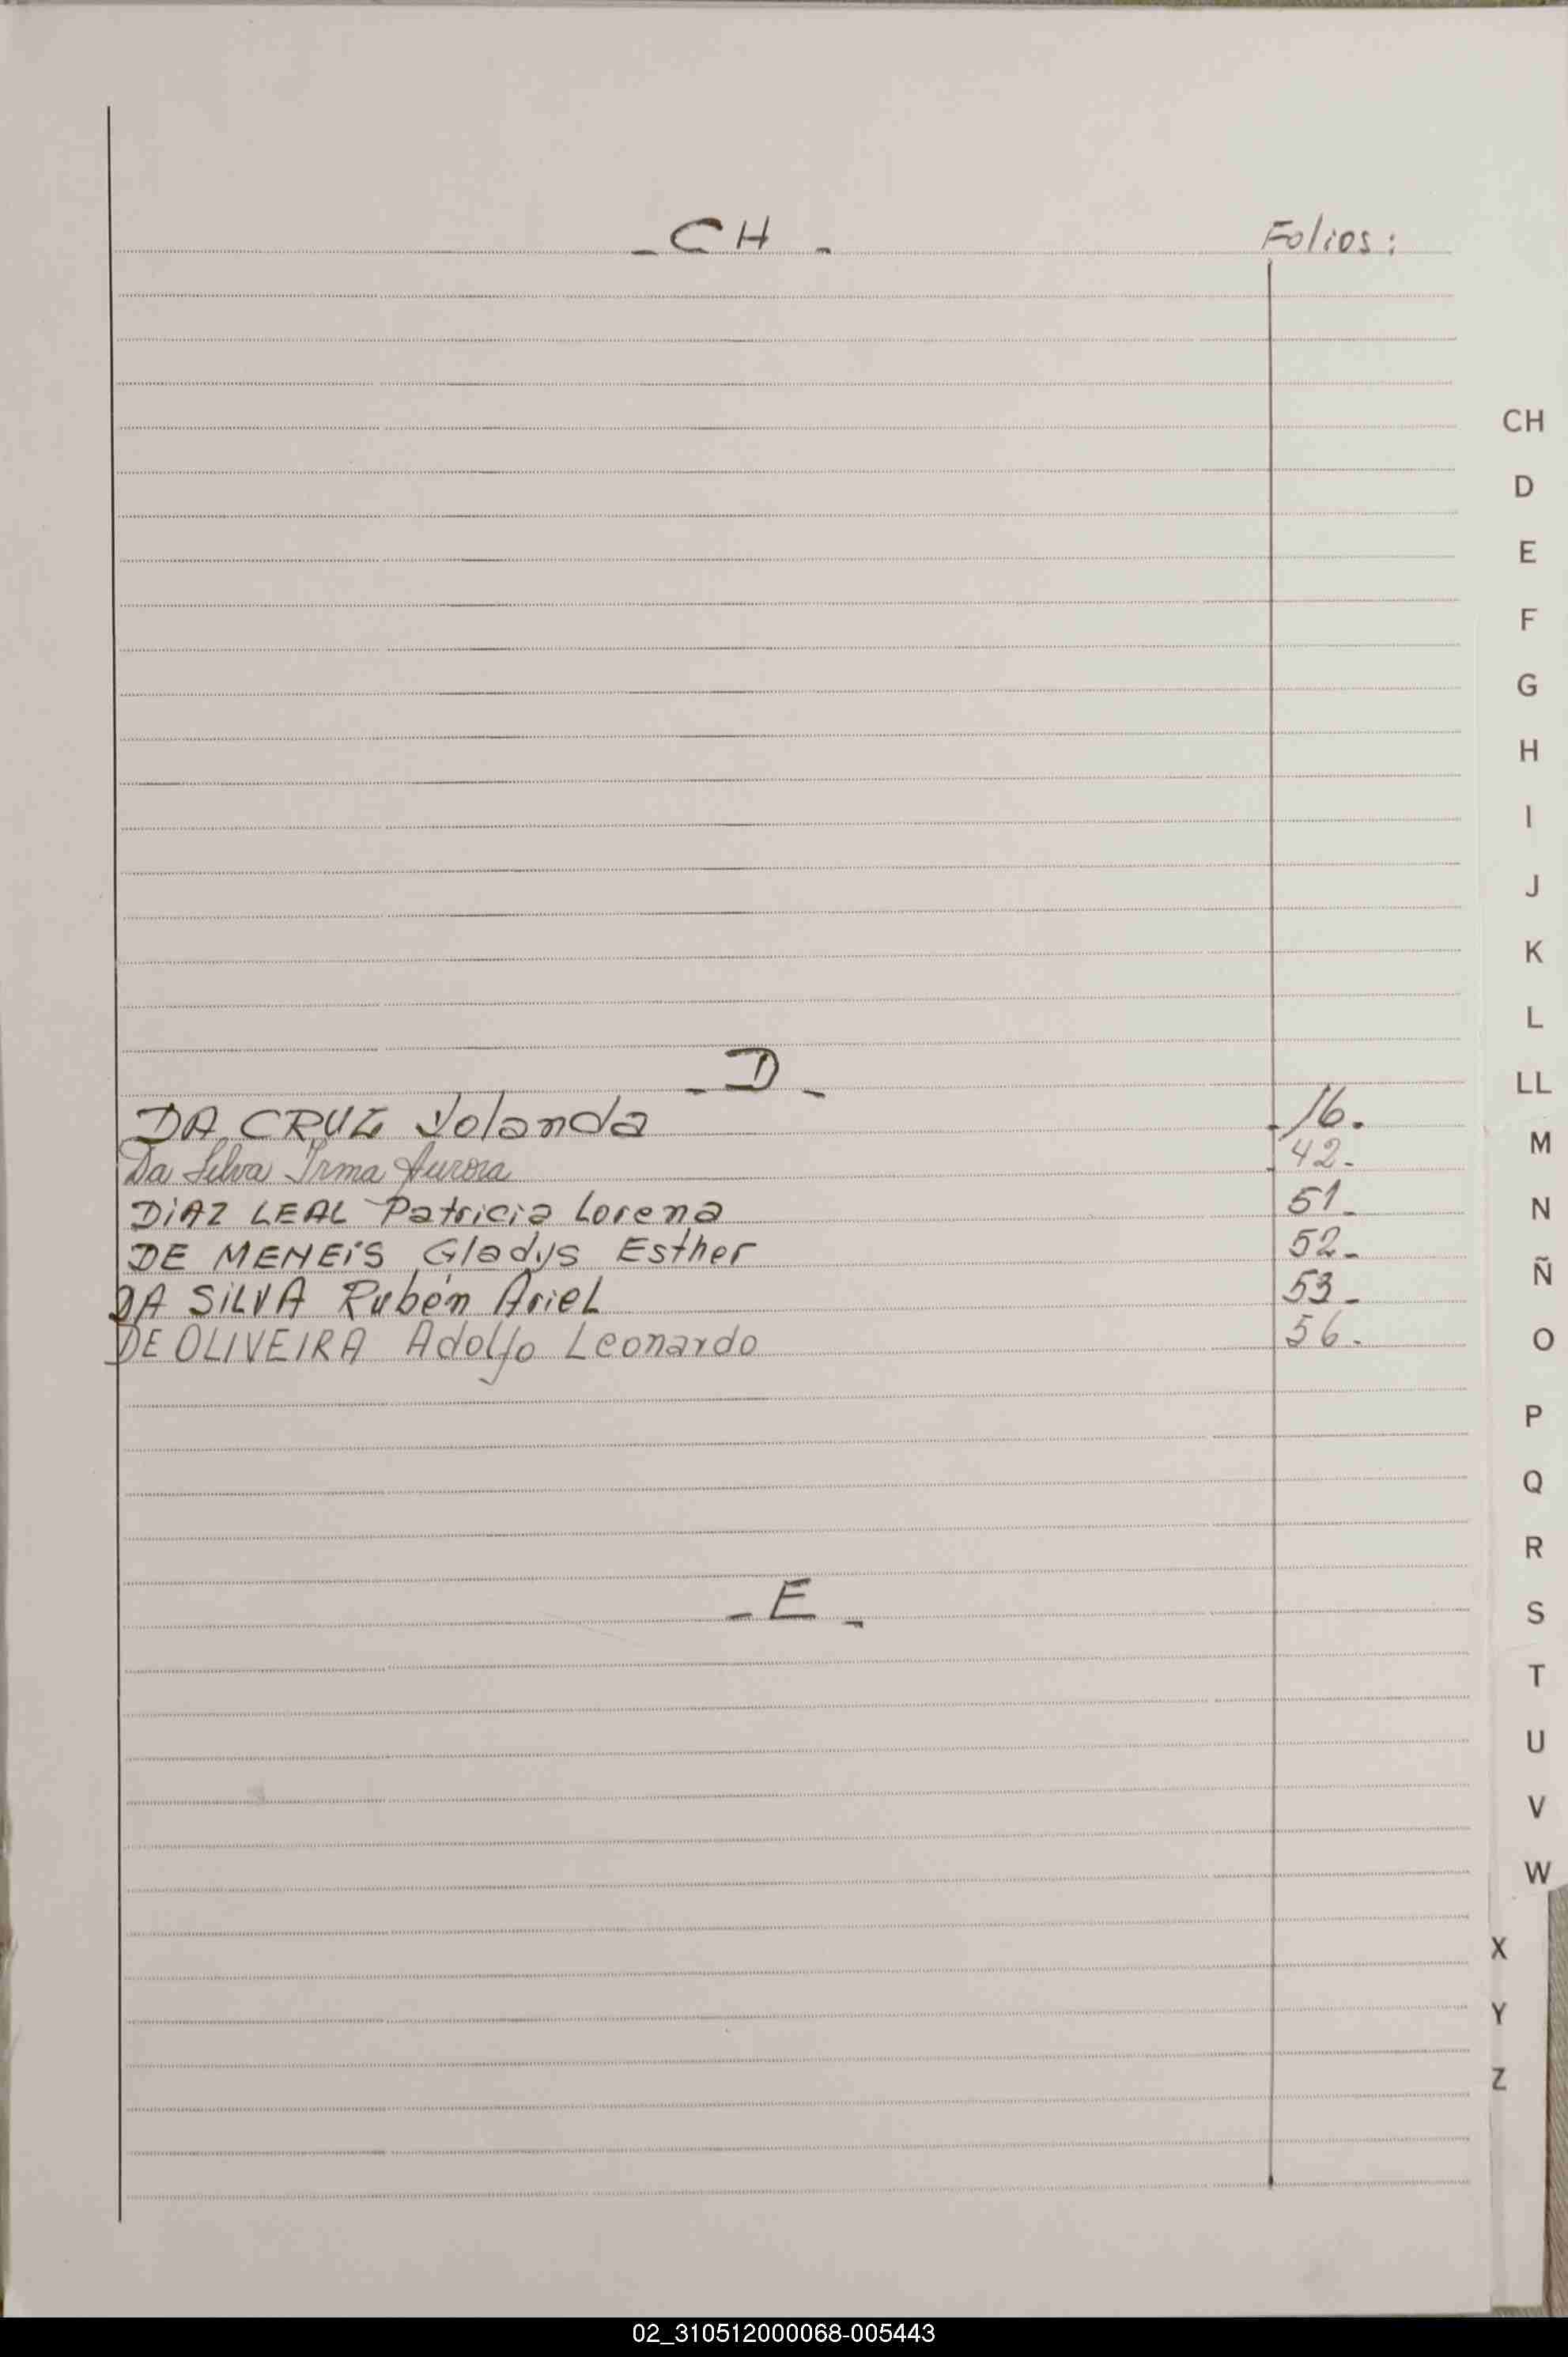 - CH -    Folios:
CH
D
E
F
G
H
I
J
K
L
- D -
LL
DA CRUZ Yolanda    16.
M
Da Silva Irma Aurora    42.
DiAZ LEAL Patricia Lorena    51.
N
DE MENEiS Gladys Esther    52.
Ñ
DA SiLVA Rubén Ariel    53.
DE OLIVEIRA Adolfo Leonardo    56.
O
P
Q
R
- E -
S
T
U
V
W
X
Y
Z
02_310512000068-005443